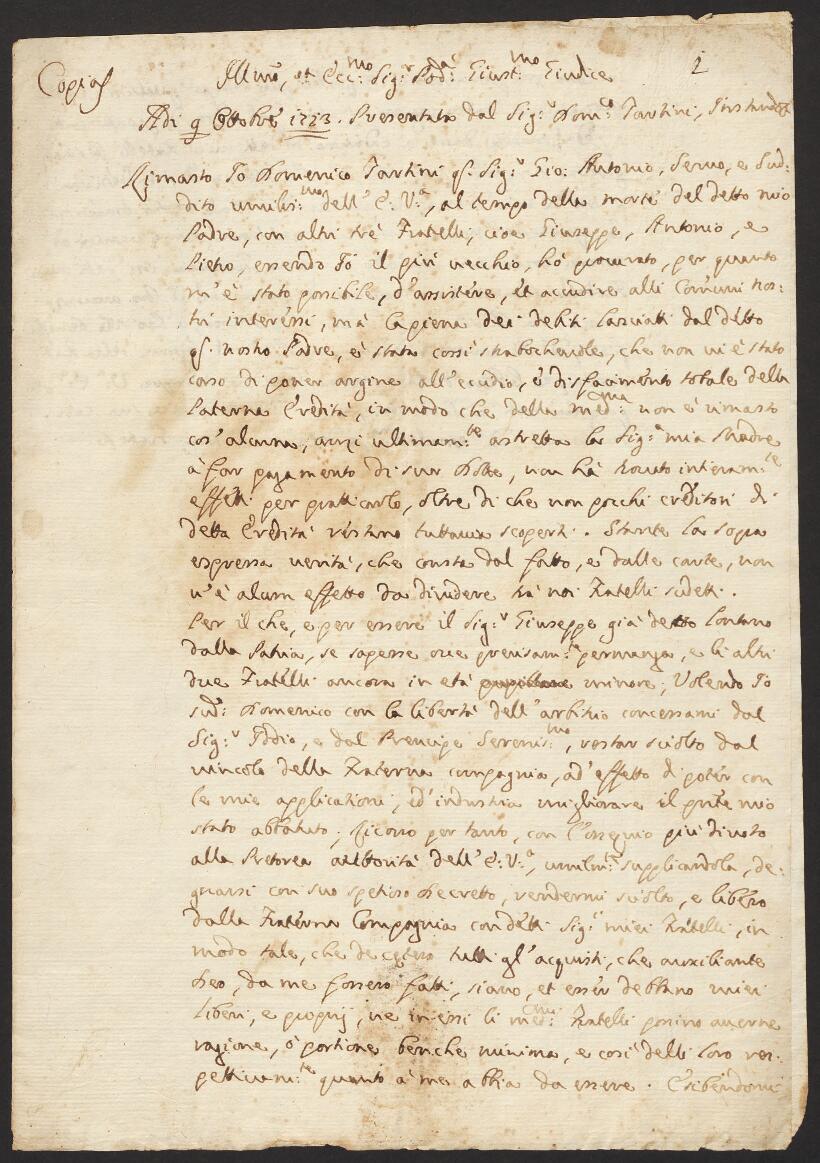 Copia
1
Illmo, et Ecc:mo Sig:r Podà: Giust:mo Giudice
Adi 9 Ottobre 1713. Presentata dal Sig:r Dom:co Tartini, Instando
Rimasto Io Domenico Tartini q: Sig:r Gio: Antonio, Servo, e Sud:
dito umilis:mo dell' E: V:a, al tempo della morte del detto mio
Padre, con altri trè Fratelli, cioè Giuseppe, Antonio, e
Pietro, essendo Io il più vecchio, hò procurato, per quanto
m'è stato possibile, d'assistere, et accudire alli Comuni nos:
tri interessi, mà la piena dei debiti lasciati dal detto
q: nostro Padre, è stata cossì strabochevole, che non vi è stato
caso di poner argine all'ecidio, e disfacimento totale della
Paterna Eredità, in modo che della med:ma non è rimasto
cos' alcuna, anzi ultimam:te astretta la Sig:ra mia Madre
à far pagamento di sua Dote, non hà trovato interam:te
effetti per pratticarlo, oltre di che non pochi creditori di
detta Eredità restano tuttavia scoperti. Stante la sopra
espressa verità, che consta dal fatto, e dalle carte, non
v'è alcun effetto da dividere trà noi Fratelli sudetti.
Per il che, e per essere il Sig:r Giuseppe già detto lontano
dalla Patria, se sapersi ove precisam:te permanga, e li altri
due Fratelli ancora in età pupillare minore; Volendo Io
sud: Domenico con la libertà dell' arbitrio concessami dal
Sig:r Iddio, e dal Prencipe Serenis:mo, restar sciolto dal
vincolo della Fraterna compagnia, ad' effetto di poter con
le mie applicationi, ed' industria migliorare il pnte mio
stato abbatuto; Ricorro per tanto, con l'ossequio più divoto
alla Pretorea authorità dell' E: V:a, umilm:te supplicandola, de:
gnarsi con suo spetioso Decretto, rendermi sciolto, e libero
dalla Fraterna Compagnia con detti Sig:ri miei Fratelli, in
modo tale, che de cetero tutti gl' acquisti, che auxiliante
Deo, da me fossero fatti, siano, et esser debbano miei
liberi, e proprij, ne in essi li med:mi Fratelli possino averne
ragione, ò portione benche minima, e così delli loro res:
pettivam:te quanto à me abbia da essere. Esibendomi